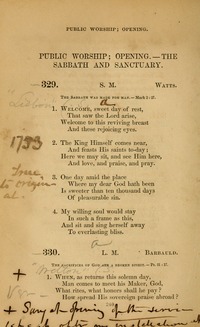 PUBLIC WORSHIP; OPENING.
PUBLIC WORSHIP; OPENING.—THE
SABBATH AND SANCTUARY.
329. S. M. WATTS.
THE SABBATH WAS MADE FOR MAN.—Mark 2:27.
1. WELCOME, sweet day of rest,
That saw the Lord arise,
Welcome to this reviving breast
And these rejoicing eyes.
2. The King Himself comes near,
And feasts His saints to-day;
Here we may sit, and see Him here,
And love, and praise, and pray.
3. One day amid the place
Where my dear God hath been
Is sweeter than ten thousand days
Of pleasurable sin.
4. My willing soul would stay
In such a frame as this,
And sit and sing herself away
To everlasting bliss.
330. L. M. BARBAULD.
THE SACRIFICES OF GOD ARE A BROKEN SPIRIT.—Ps. 51:17.
1. WHEN, as returns this solemn day,
Man comes to meet his Maker, God,
What rites, what honors shall he pay?
How spread His sovereign praise abroad?
1733
+ Sung at opening of the service